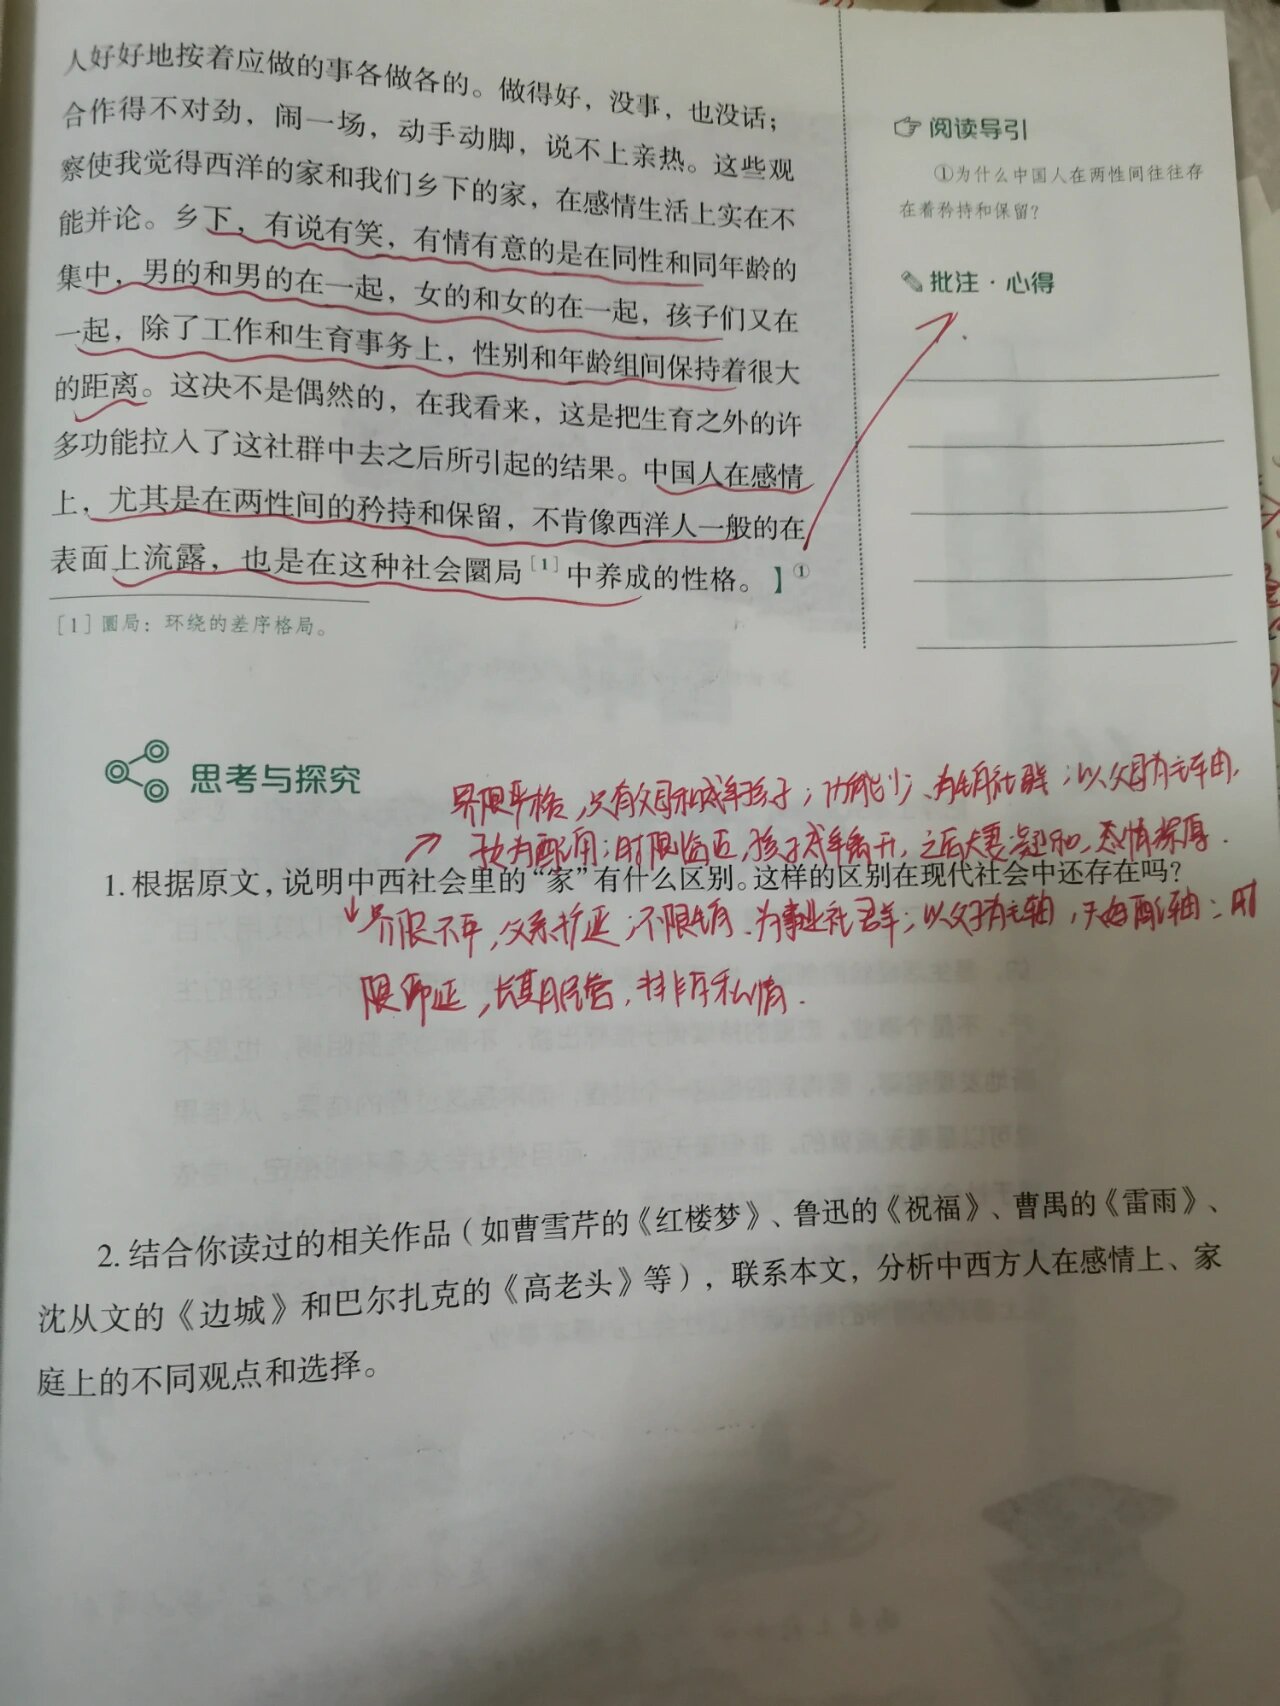 人好好地按着应做的事各做各的。做得好，没事，也没话；
合作得不对劲，闹一场，动手动脚，说不上亲热。这些观
察使我觉得西洋的家和我们乡下的家，在感情生活上实在不
能并论。乡下，有说有笑，有情有意的是在同性和同年龄的
集中，男的和男的在一起，女的和女的在一起，孩子们又在
一起，除了工作和生育事务上，性别和年龄组间保持着很大
的距离。这决不是偶然的，在我看来，这是把生育之外的许
多功能拉入了这社群中去之后所引起的结果。中国人在感情
上，尤其是在两性间的矜持和保留，不肯像西洋人一般的在
表面上流露，也是在这种社会圜局[1]中养成的性格。】①
[1] 圜局：环绕的差序格局。
阅读导引
①为什么中国人在两性间往往存
在着矜持和保留？
批注·心得
思考与探究
界限严格，只有父母和未成年孩子；功能少、为生育社群；以父母为主轴，
子为配角；时限临近，孩子成年离开，之后夫妻凝和，感情深厚．
1.根据原文，说明中西社会里的“家”有什么区别。这样的区别在现代社会中还存在吗？
界限不严，父系扩延；不限生育、为事业社群；以父子为主轴，夫妇配轴；时
限绵延，长期民营，排斥私情．
2.结合你读过的相关作品（如曹雪芹的《红楼梦》、鲁迅的《祝福》、曹禺的《雷雨》、
沈从文的《边城》和巴尔扎克的《高老头》等），联系本文，分析中西方人在感情上、家
庭上的不同观点和选择。